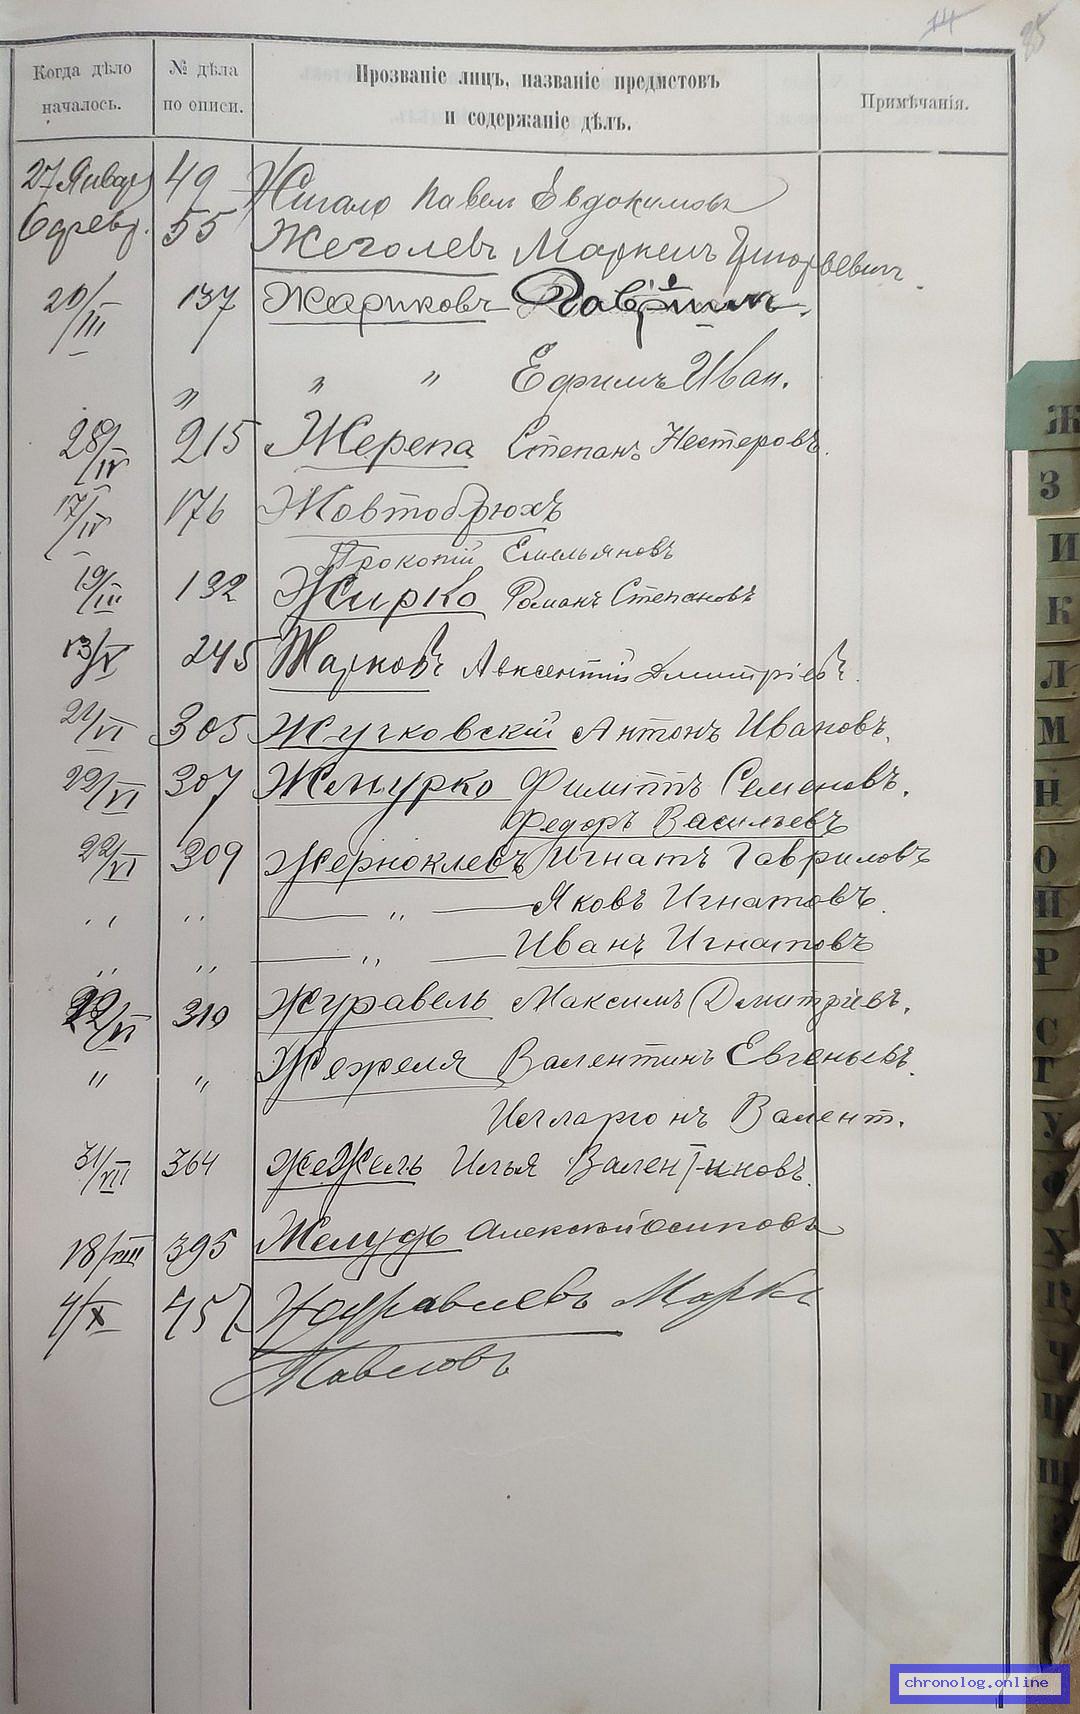 14
85
Когда дѣло началось.
№ дѣла по описи.
Прозваніе лицъ, названіе предметовъ и содержаніе дѣлъ.
Примѣчанія.
27 Январ 49 Жигало Павел Евдокимовъ
6 февр. 55 Жеголевъ Маркелъ Григорьевич.
20/III 137 Жариковъ Гавріил.
" " " Ефимъ Иван.
28/IV 215 Жерепа Степанъ Нестеровъ.
17/IV 176 Жовтобрюхъ
Прокопій Емельяновъ
19/III 132 Жирко Романъ Степановъ
13/V 245 Жарковъ Авксентій Дмитріевъ.
21/VI 305 Жучковскій Антонъ Ивановъ.
22/VI 307 Жмурко Филиппъ Семеновъ.
Федоръ Васильевъ
22/VI 309 Жерноклевъ Игнатъ Гавриловъ
" " — " — Яковъ Игнатовъ.
" " — " — Иванъ Игнатовъ
22/VI 310 Журавель Максимъ Дмитріевъ.
" " Жежеля Валентинъ Евгеньевъ.
Илларіонъ Валент.
31/VII 364 Жежель Илья Валентиновъ.
18/VIII 395 Желудь Алексѣй Осиповъ
4/X 457 Журавлевъ Маркъ
Павловъ
Ж
З
И
К
Л
М
Н
О
П
Р
С
Т
У
Ф
Х
Ц
Ч
Ш
Щ
chronolog.online